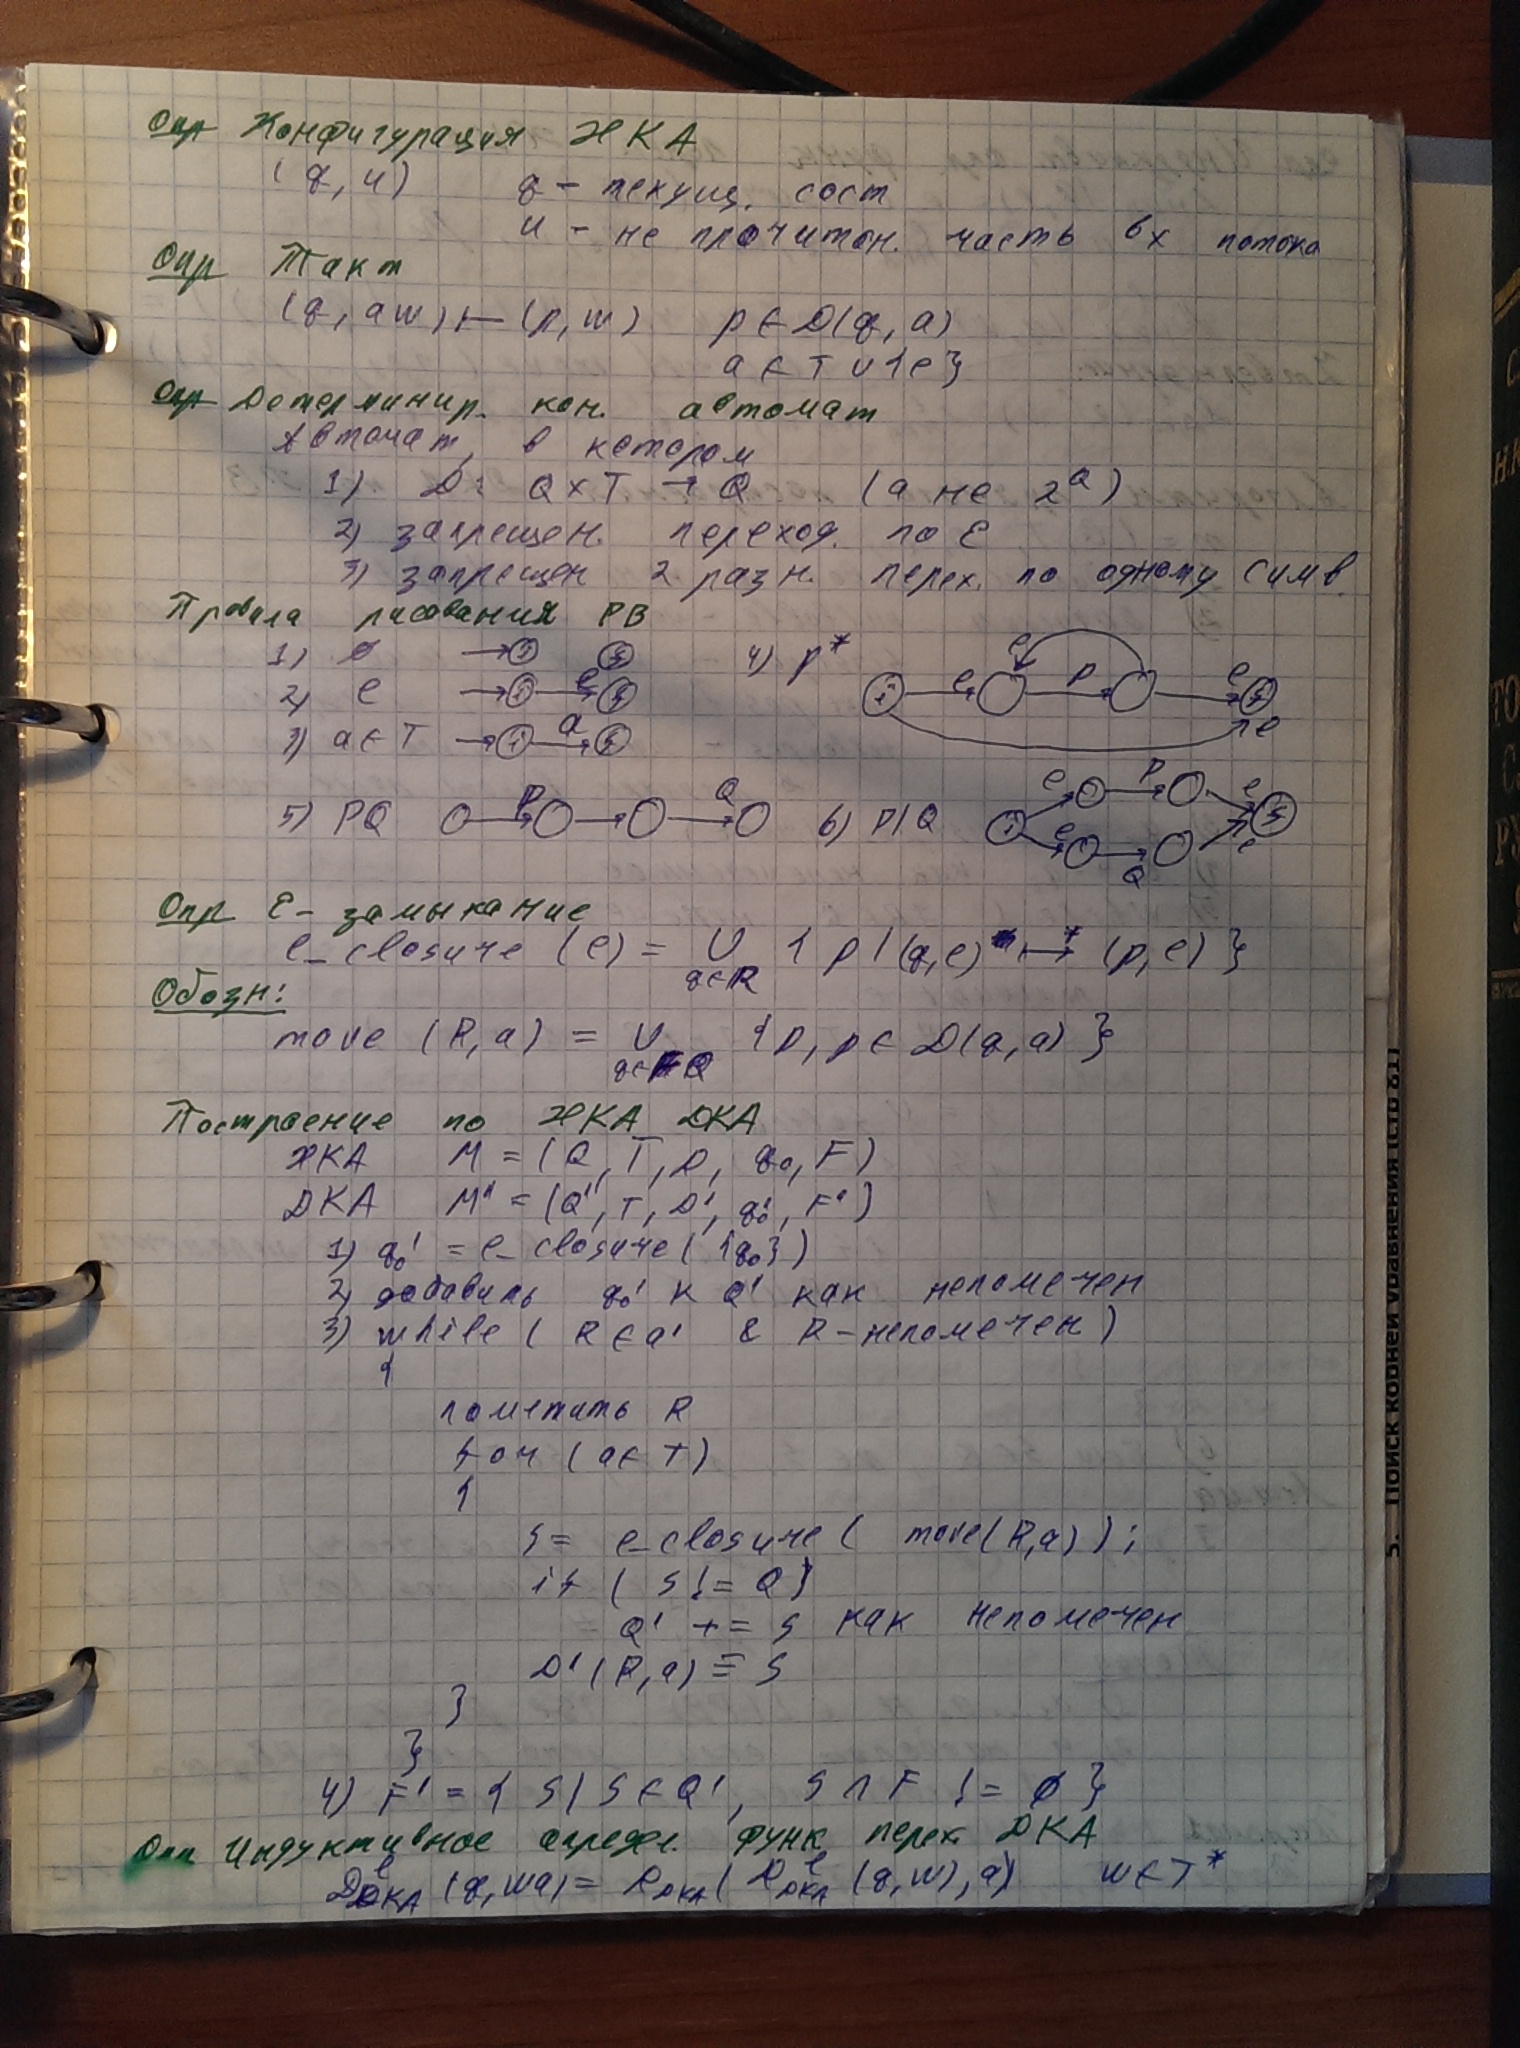 Опр Конфигурация НКА
(q, u) q - текущ. сост
u - не прочитан. часть вх потока
Опр Такт
(q, aw) ⊢ (p, w) p ∈ D(q, a)
a ∈ T ∪ {e}
Опр Детерминир. кон. автомат
Автомат, в котором
1) D: Q x T → Q (а не 2^Q)
2) запрещен. переход. по e
3) запрещен 2 разн. перех. по одному симв.
Правила рисования РВ
1) ∅ → i f
2) e → i e f
3) a ∈ T → i a f
4) p* i e p e f e e
5) PQ P Q
6) P|Q i e P e e Q e f
Опр e - замыкание
e_closure (e) = ∪ { p | (q, e) ⊢* (p, e) }
q∈R
Обозн:
move (R, a) = ∪ {p, p ∈ D(q, a) }
q∈Q
Построение по НКА ДКА
НКА M = (Q, T, D, q₀, F)
ДКА M' = (Q', T, D', q₀', F')
1) q₀' = e_closure({q₀})
2) добавить q₀' к Q' как непомечен
3) while ( R ∈ Q' & R - непомечен )
{
пометить R
for (a ∈ T)
{
S = e_closure( move(R,a) );
if ( S != Q )
Q' += S как непомечен
D'(R, a) = S
}
}
4) F' = { S | S ∈ Q', S ∩ F != ∅ }
Опр Индуктивное определ. функ. перех. ДКА
D^e_ДКА (q, wa) = D_ДКА ( D^e_ДКА (q, w), a) w ∈ T*
5. Поиск корней уравнения (стр 81)